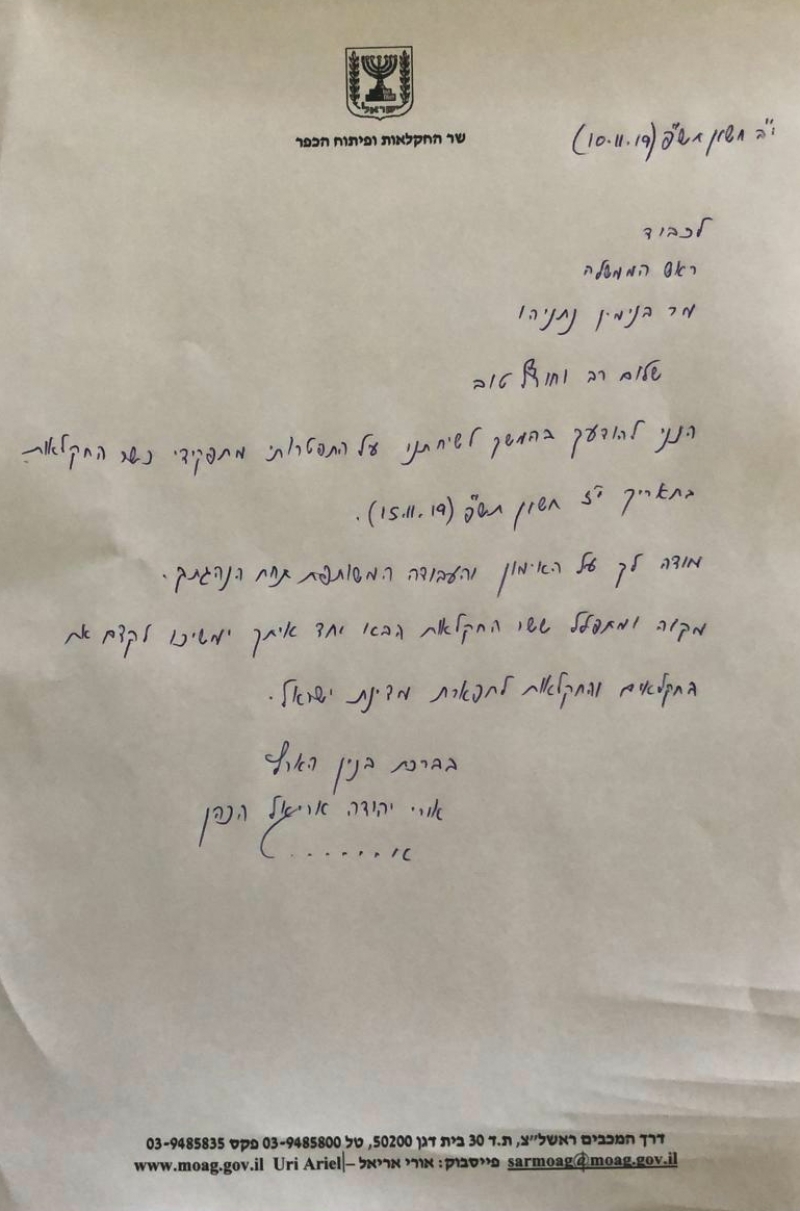 ישראל
שר החקלאות ופיתוח הכפר
י"ב חשון תש"פ (10.11.19)
לכבוד
ראש הממשלה
מר בנימין נתניהו
שלום רב וחורף טוב
הנני להודעך בהמשך לשיחתנו על התפטרותי מתפקידי כשר החקלאות
בתאריך י"ז חשון תש"פ (15.11.19).
מודה לך על האימון והעבודה המשותפת תחת הנהגתך.
מקוה ומתפלל ששר החקלאות הבא יחד איתך ימשיכו לקדם את
החקלאים והחקלאות לתפארת מדינת ישראל.
בברכת בנין הארץ
אורי יהודה אריאל הכהן
דרך המכבים ראשל״צ, ת.ד 30 בית דגן 50200, טל 03-9485800 פקס 03-9485835
sarmoag@moag.gov.il פייסבוק: אורי אריאל – Uri Ariel www.moag.gov.il